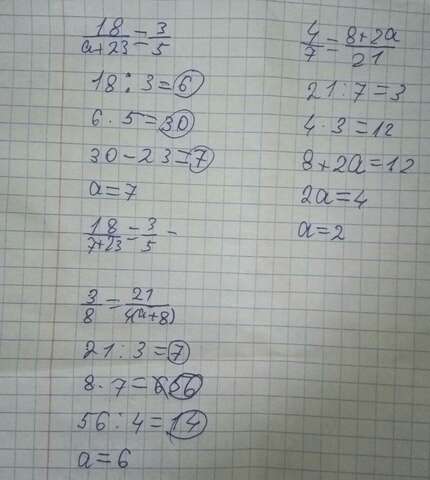 18/(a+23) = 3/5
18 : 3 = 6
6 · 5 = 30
30 - 23 = 7
a = 7
18/(7+23) = 3/5 -
3/8 = 21/(4(a+8))
21 : 3 = 7
8 · 7 = 56
56 : 4 = 14
a = 6
4/7 = (8+2a)/21
21 : 7 = 3
4 · 3 = 12
8 + 2a = 12
2a = 4
a = 2